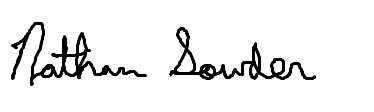 Nathan Sowder